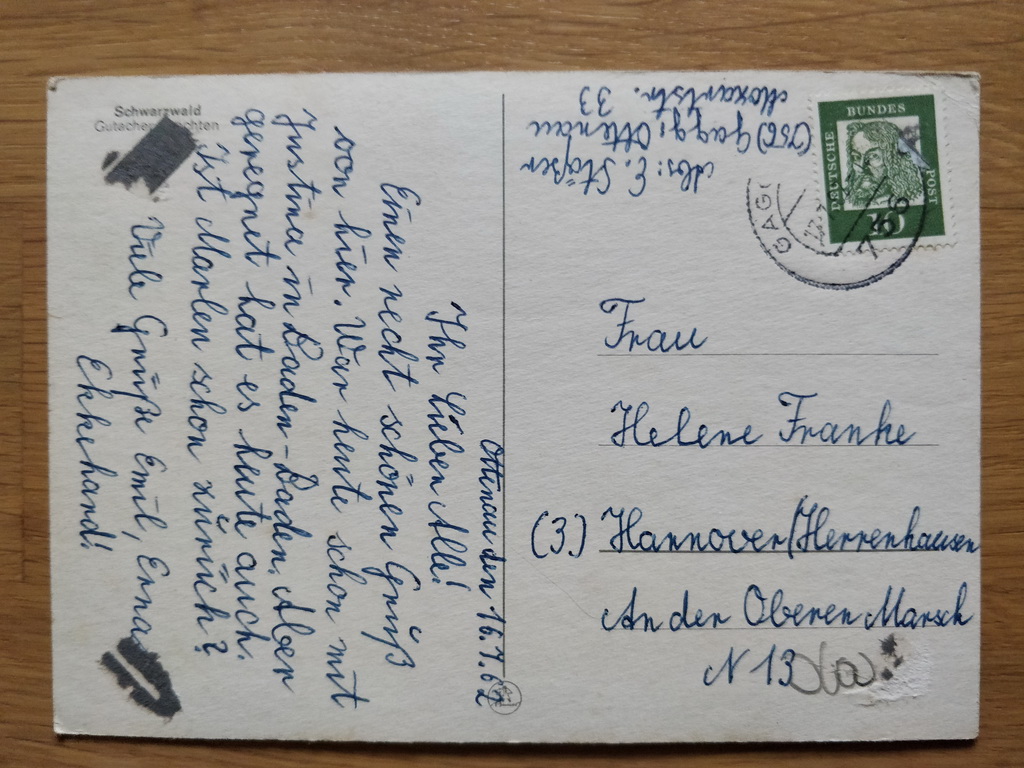 Schwarzwald
Gutacher Trachten
Ottenau den 16.7.62
Ihr Lieben Alle!
Einen recht schönen Gruß
von hier. War heute schon mit
Justina in Baden-Baden. Aber
geregnet hat es heute auch.
Ist Marlen schon zurück?
Viele Grüße Emil, Erna
Ekkehard!
Abs: E. Stößer
(756) Gagg: Ottenau
Mozartstr. 33
DEUTSCHE
BUNDES
POST
10
GAGG
756
Frau
Helene Franke
(3.) Hannover/Herrenhausen
An der Oberen Marsch
N 13